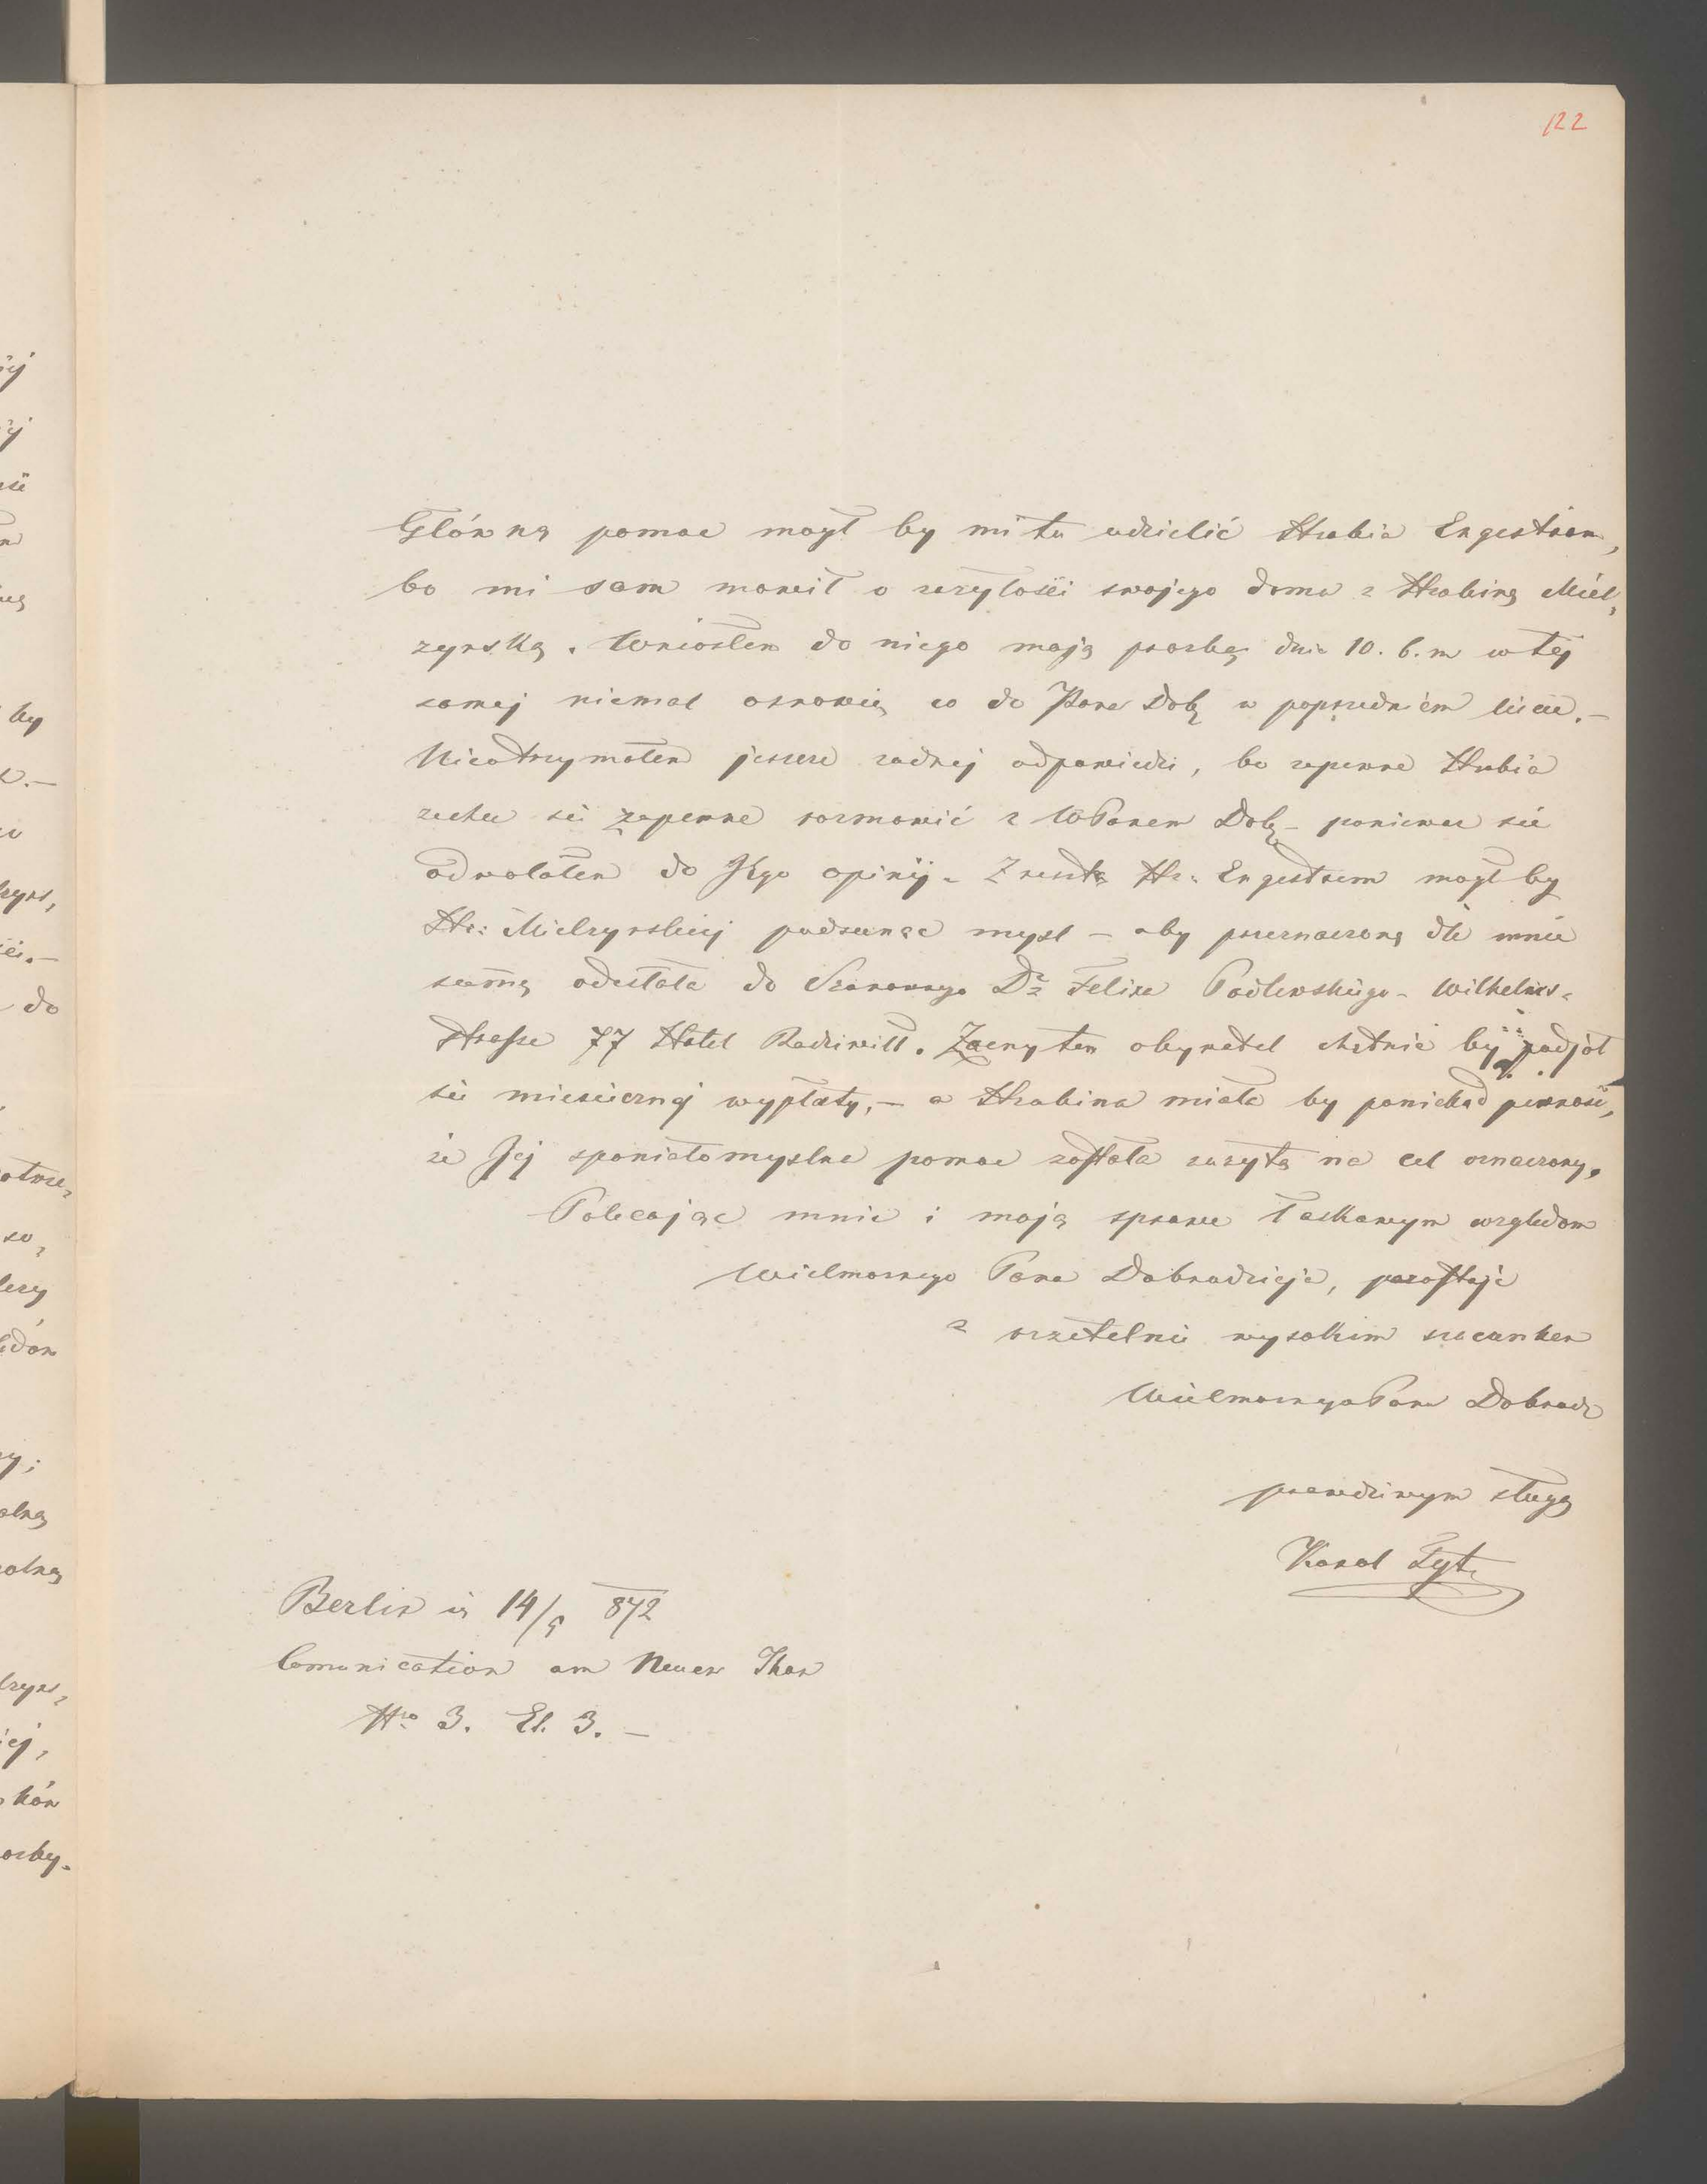 122
Główną pomoc mogł by mi tu udzielić Hrabia Engestrom,
bo mi sam mowił o zażyłości swojego domu z Hrabiną Miel,
zynską. Wniosłem do niego moją prozbę dnia 10. b. m w tej
samej niemal osnowie, co do Pana Dob, w poprzedniém liscie.—
Nieotrzymałem jeszcze zadnej odpowiedzi, bo zapewne Hrabia
zechce się zapewne rozmowić z WPanem Dob,— poniewaz się
odwołałem do Jego opinij. Zresztą Hr: Engestrem mogł by
Hr: Mielzynskiej podsunąc mysl — aby przeznaczoną dla mnie
summę odesłała do Szanownego Dr Felixa Wilhelms-
strasse 77 Hotel Radziwill. Zacny ten obywatel chętnie by podjoł
się miesiecznej wypłaty,— a Hrabina miała by poniekad pewnosc,
ze Jej spaniałomyslna pomoc została zuzytą na cel oznaczony.
Polecając mnie i moją sprawe łaskawym względom
Wielmoznego Pana Dobrodzieja, pozostaję
z rzetelnie wysokim szacunkem
Wielmoznego Pana Dobrodz
prawdziwym sługą
Karol Tyt.
Berlin 14/9 872
Comunication am Neuen Thor
Nro 3. Et. 3. —